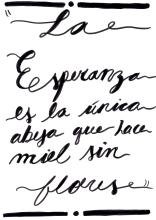 "La
Esperanza
es la única
abeja que hace
miel sin
flores"